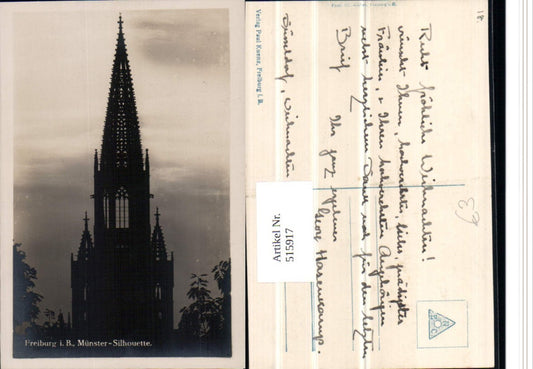 Freiburg i. B., Münster-Silhouette.
Verlag Paul Kuenz, Freiburg i. B.
Düsseldorf, Weihnachten
Artikel Nr.
515917
Recht fröhliche Weihnachten!
wünscht Ihnen, hochverehrtes, liebes, gnädigstes
Fräulein, & Ihren hochverehrten Angehörigen
nebst herzlichem Dank noch für den letzten
Brief
Ihr ganz ergebener
Georg Hasenkamp.
18.
E3